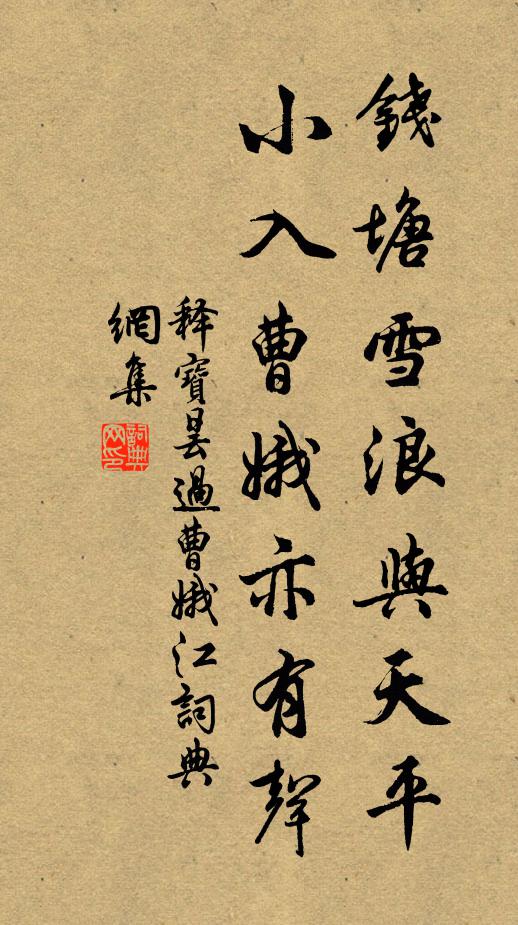 錢塘雪浪與天平
小入曹娥亦有聲
释寶曇過曹娥江詞典
網集
詞典
网印